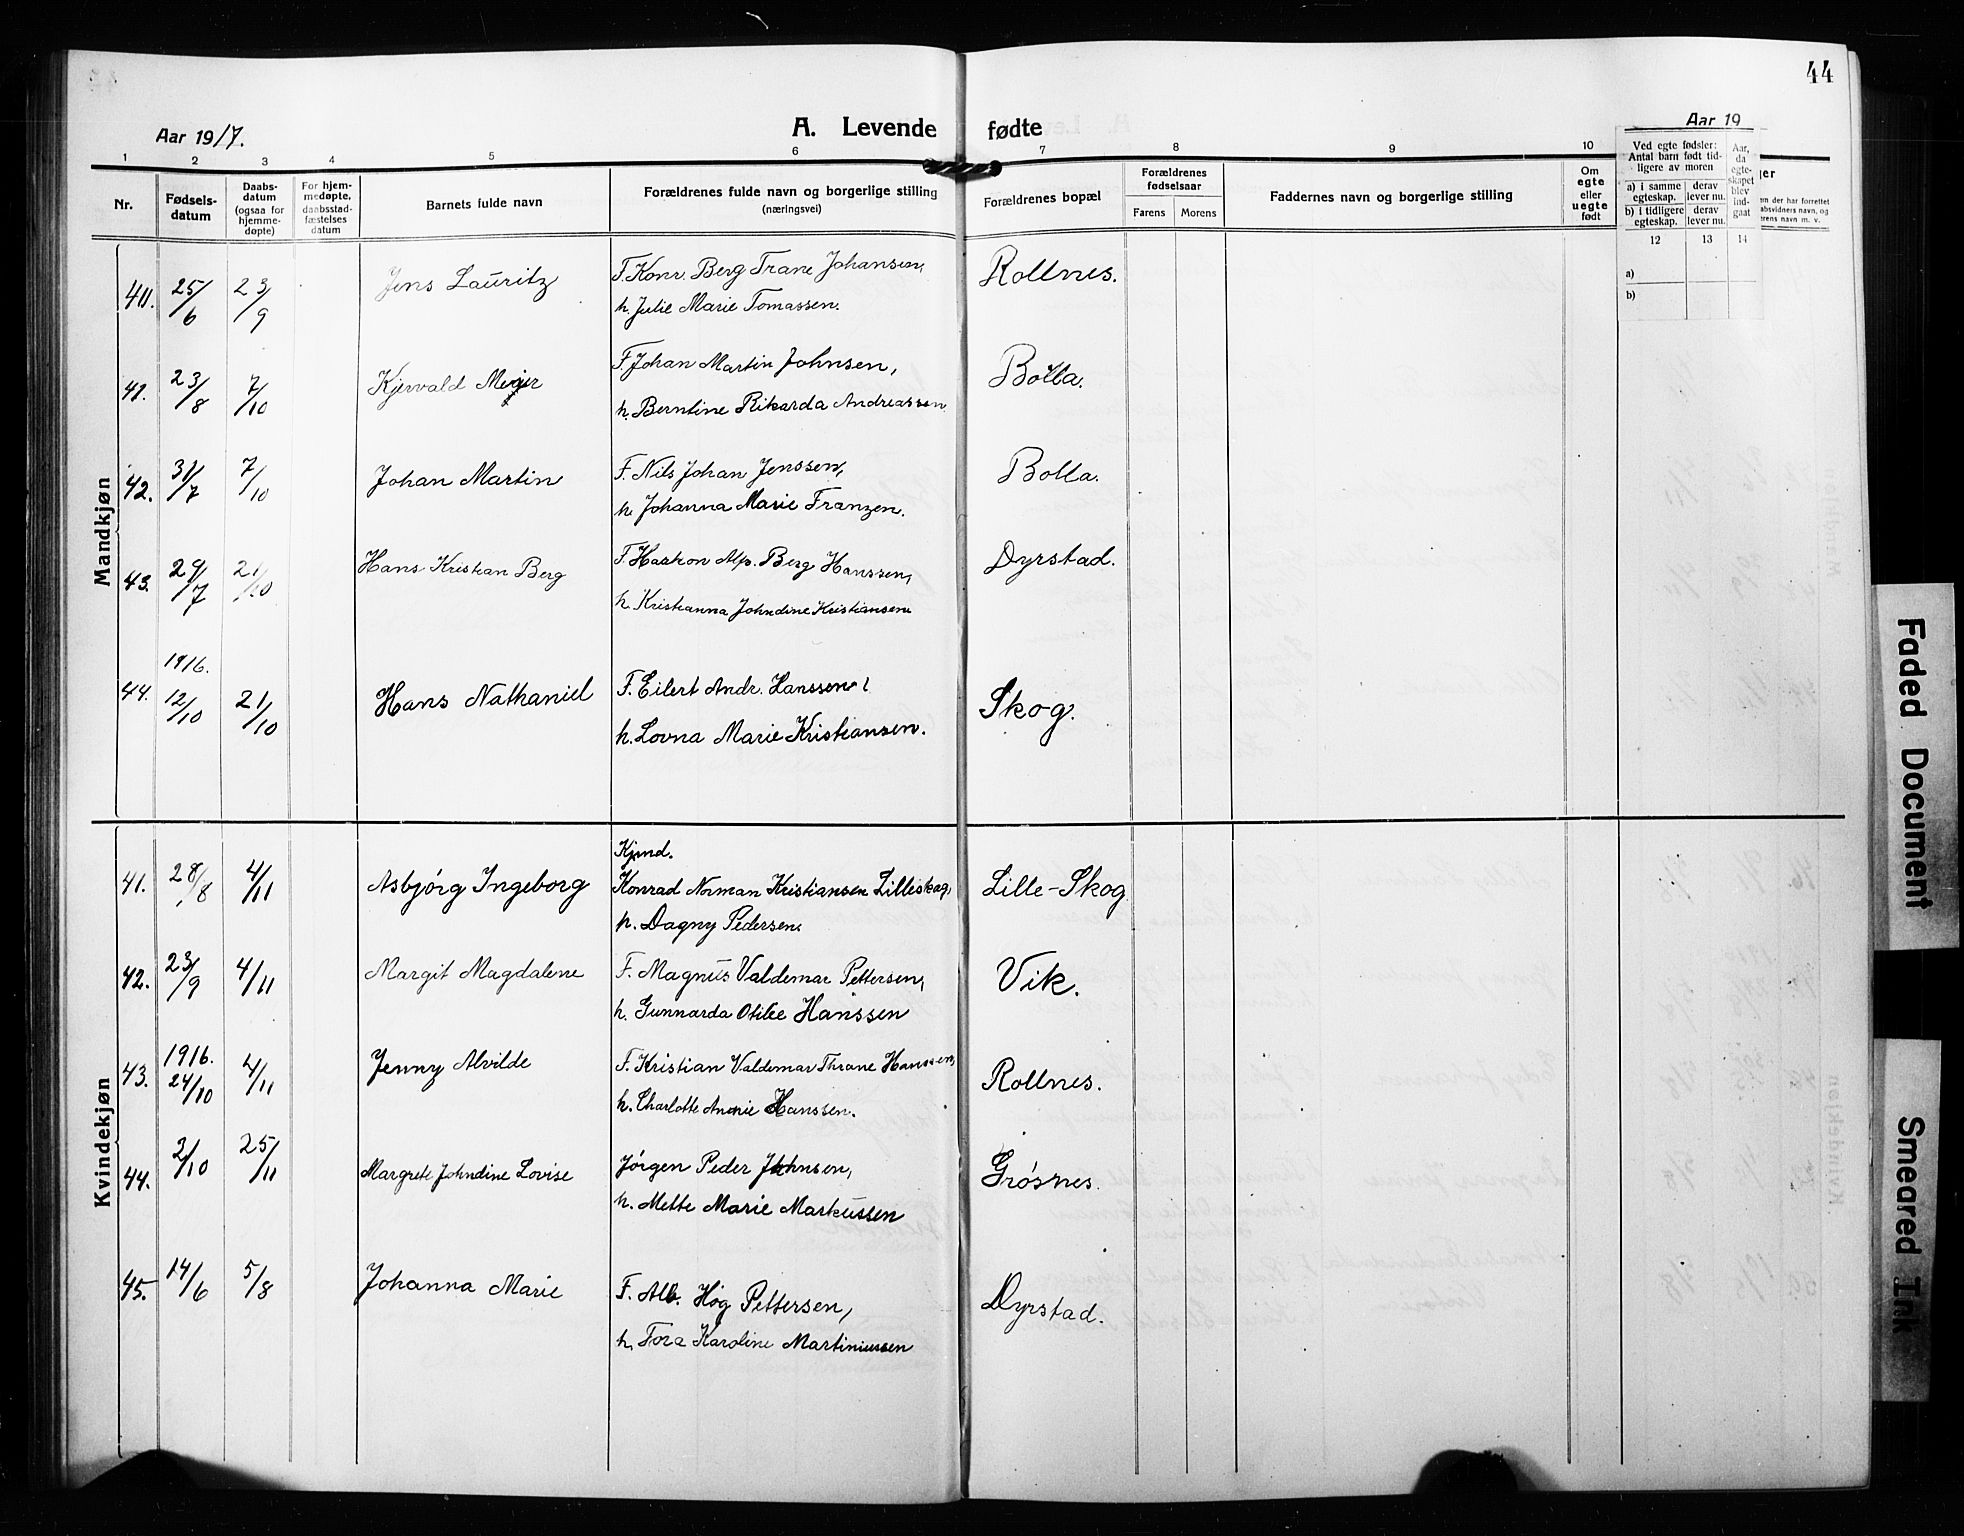 44
Aar 1917.
A. Levende fødte
Aar 19
1 2 3 4 5 6 7 8 9 10 12 13 14
Nr.
Fødsels-
datum
Daabs-
datum
(ogsaa for
hjemme-
døpte)
For hjem-
medøpte,
daabsstad-
fæstelses
datum
Barnets fulde navn
Forældrenes fulde navn og borgerlige stilling
(næringsvei)
Forældrenes bopæl
Forældrenes
fødselsaar
Farens Morens
Faddernes navn og borgerlige stilling
Om
egte
eller
uegte
født
Ved egte fødsler:
Antal barn født tid-
ligere av moren
a) i samme
egteskap.
derav
lever nu.
b) i tidligere
egteskap.
derav
lever nu.
Aar,
da
egte-
skapet
blev
ind-
gaat
ger
m der har forrettet
aabsvidners navn, og
erens navn m. v.
a)
b)
Mandkjøn
40. 25/6 23/9 Jens Lauritz F. Konr. Berg Trane Johansen,
h. Julie Marie Tomassen. Rollnes.
41. 23/8 7/10 Kjervald Meyer F. Johan Martin Johnsen,
h. Berntine Rikarda Andreassen Bolla.
42. 31/7 7/10 Johan Martin F. Nils Johan Jenssen,
h. Johanna Marie Franzen. Bolla.
43. 29/7 21/10 Hans Kristian Berg F. Haakon Alf. Berg Hanssen,
h. Kristianna Johndine Kristiansen Dyrstad.
1916.
44. 12/10 21/10 Hans Nathaniel F. Eilert Andr. Hanssen,
h. Lovna Marie Kristiansen. Skog.
Kvindekjøn
Kjmd.
41. 28/8 4/11 Asbjórg Ingeborg Konrad Norman Kristiansen Lilleskog,
h. Dagny Pedersen. Lille-Skog
42. 23/9 4/11 Margit Magdalene F. Magnus Valdemar Pettersen,
h. Gunnarda Otilie Hanssen Vik.
1916.
43. 24/10 4/11 Jenny Alvilde F. Kristian Valdemar Thrane Hanssen,
h. Charlotte Hanssen. Rollnes.
44. 2/10 25/11 Margrete Johndine Lovise Jórgen Peder Johnsen,
h. Mette Marie Markussen Grósnes.
45. 14/6 5/8 Johanna Marie F. Alb. Hóg Pettersen,
h. Tora Karoline Martiniussen Dyrstad.
Faded Document
Smeared Ink